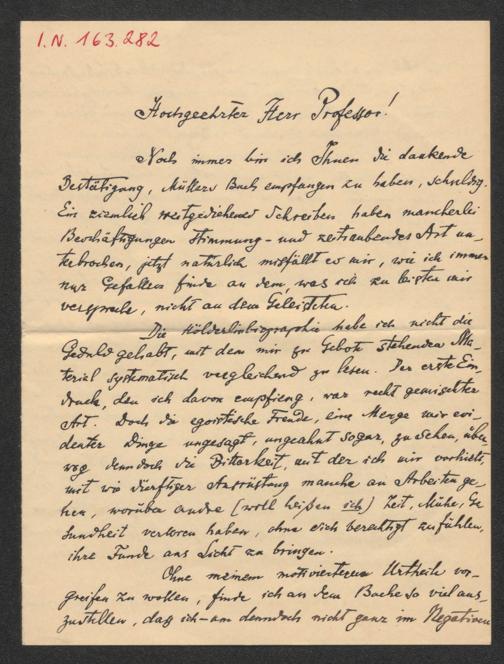 I.N. 163.282
Hochgeehrter Herr Professor!
Noch immer bin ich Ihnen die dankende
Bestätigung, Müllers Buch empfangen zu haben, schuldig.
Ein ziemlich weitgediehenes Schreiben haben mancherlei
Beschäftigungen stimmung- und zeitraubender Art un-
terbrochen, jetzt natürlich misfällt es mir, wie ich immer
nur Gefallen finde an dem, was ich zu leisten mir
verspreche, nicht an dem Geleisteten.
Die Hölderlinbiographie habe ich nicht die
Geduld gehabt, mit dem mir zu Gebote stehenden Ma-
terial systematisch vergleichend zu lesen. Der erste Ein-
druck, den ich davon empfieng, war recht gemischter
Art. Doch die egoistische Freude, eine Menge mir evi-
denter Dinge ungesagt, ungeahnt sogar, zu sehen, über
wog denndoch die Bitterkeit, mit der ich mir vorhielt,
mit wie dürftiger Ausrüstung manche an Arbeiten ge-
hen, worüber andre (will heißen ich) Zeit, Mühe, Ge
sundheit verloren haben, ohne sich berechtigt zu fühlen,
ihre Funde ans Licht zu bringen.
Ohne meinem motivierteren Urtheile vor-
greifen zu wollen, finde ich an dem Buche so viel aus-
zustellen, daß ich - um denndoch nicht ganz im Negativen